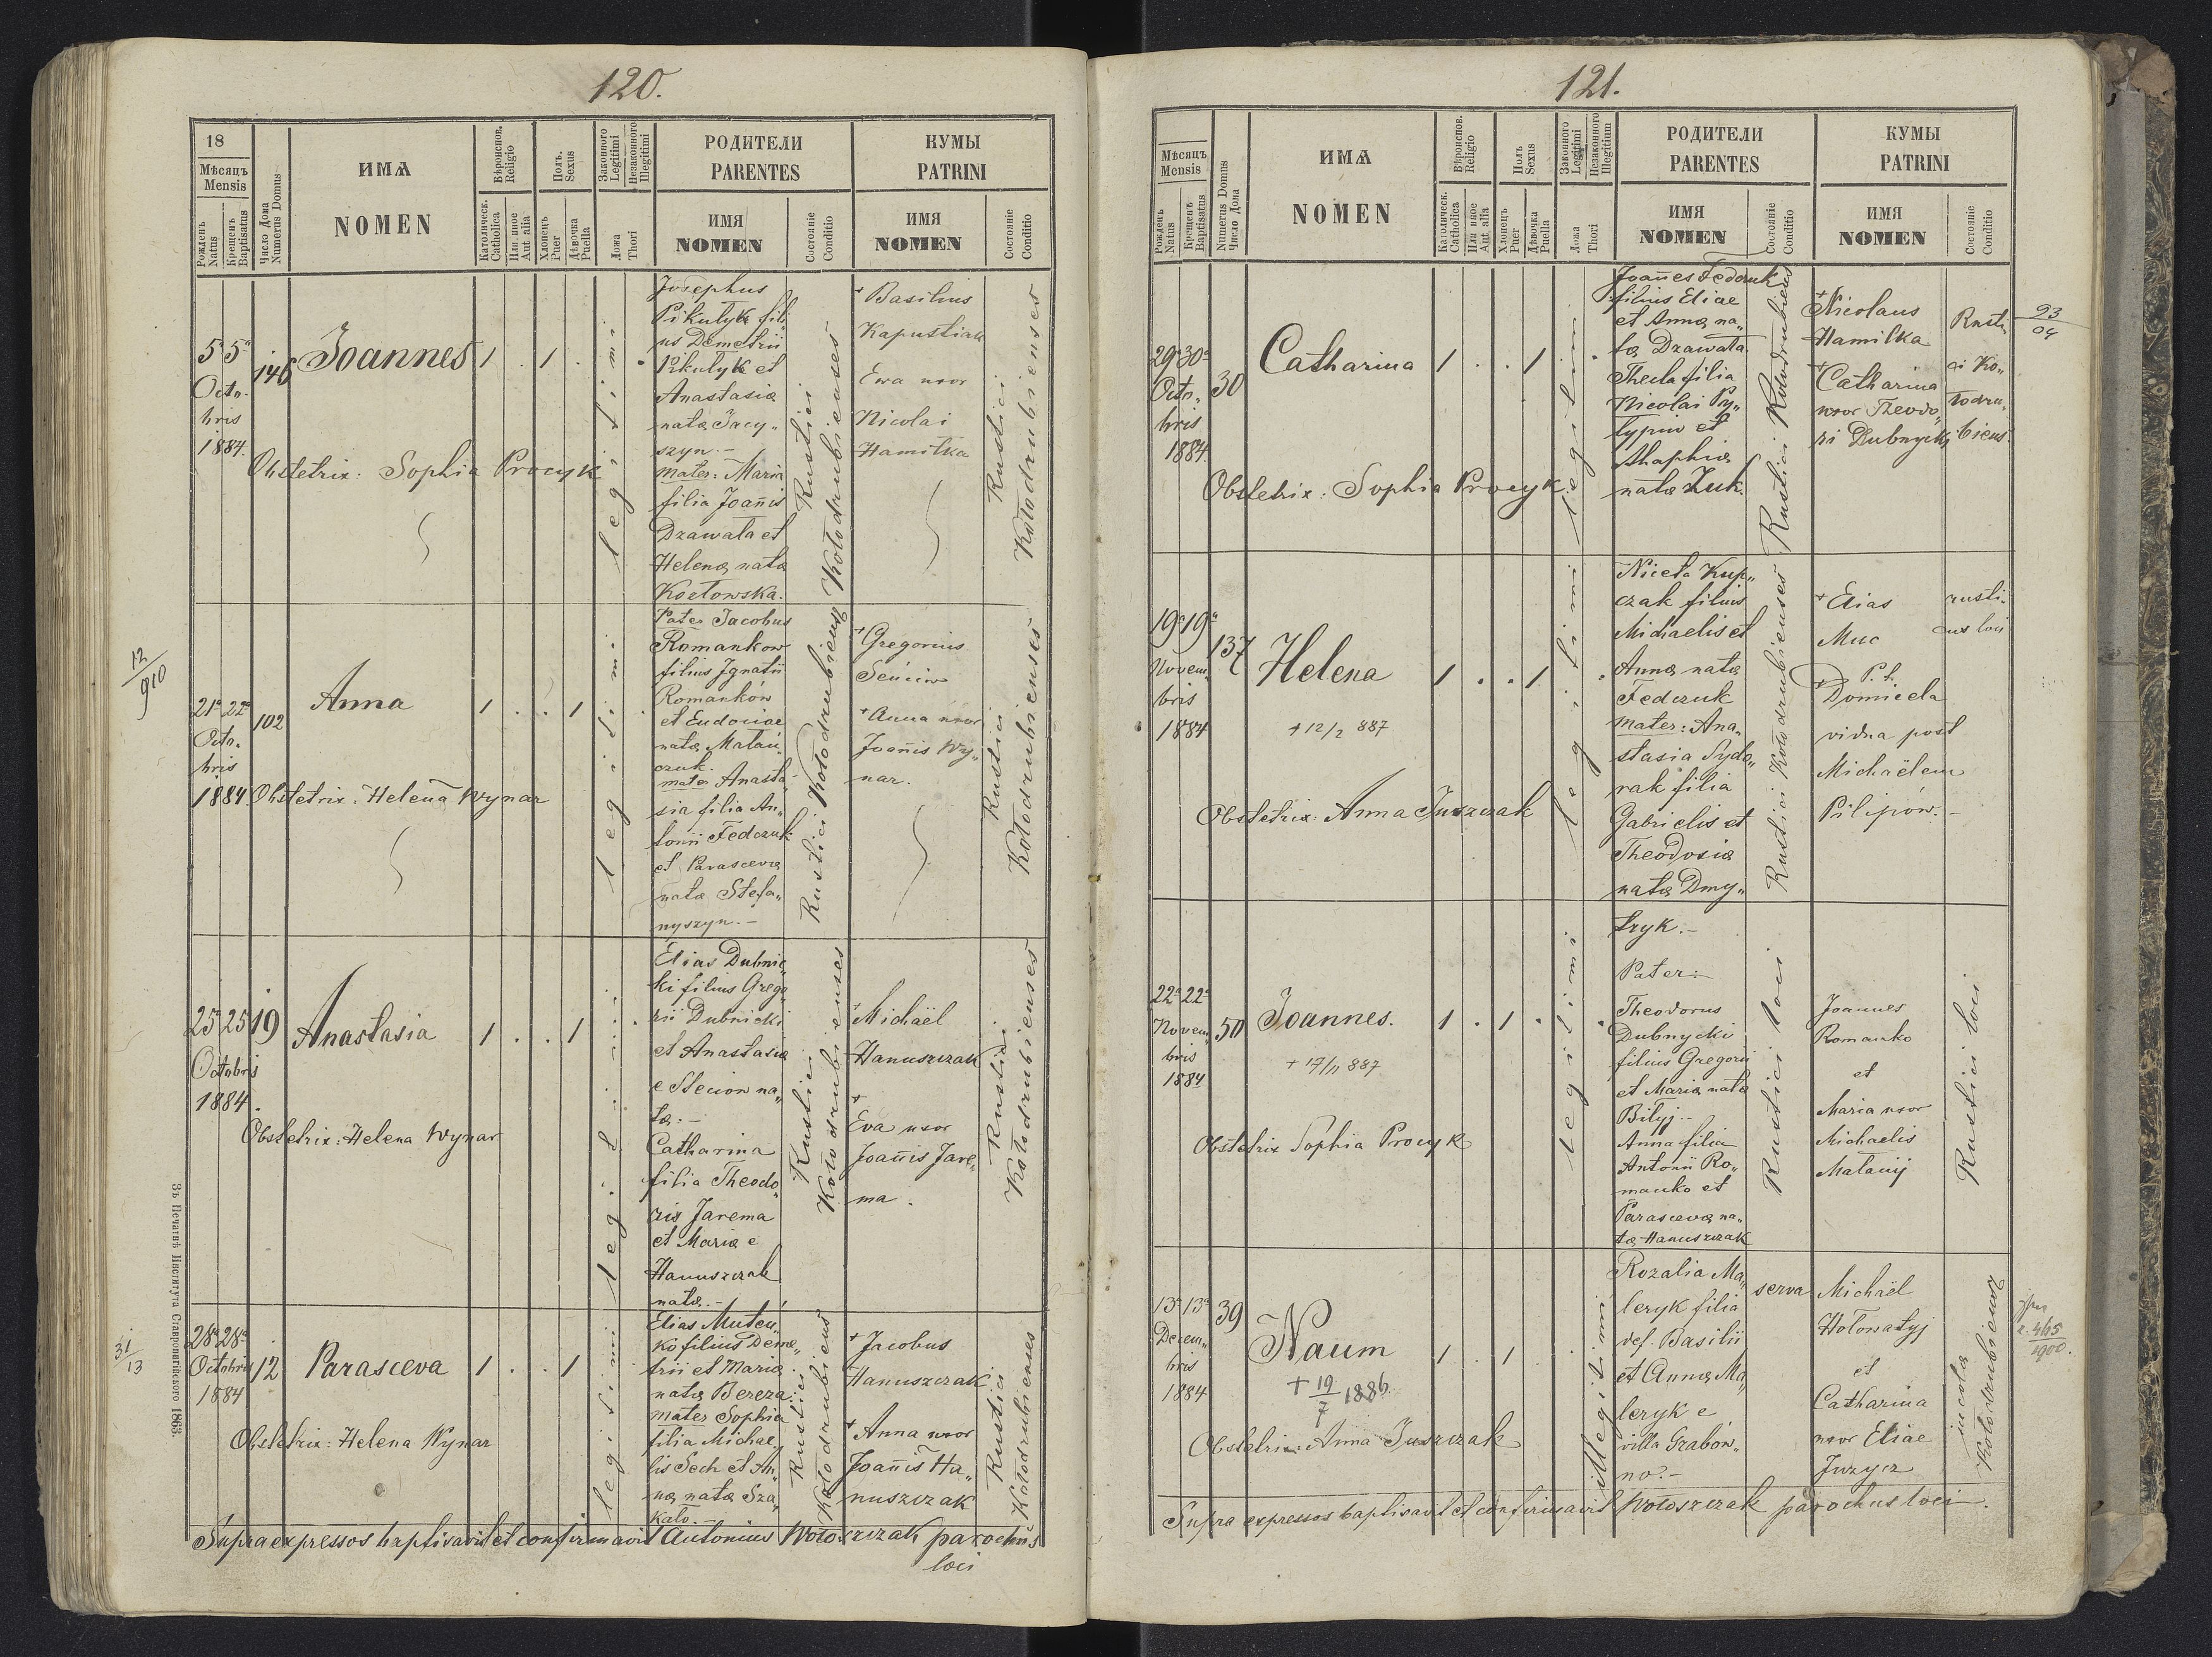 120.
18
Мѣсяцъ
Mensis
Рожденъ
Natus
Крещенъ
Baptisatus
Число Дома
Numerus Domus
ИМѦ
NOMEN
Вѣроиспов.
Religio
Католическ.
Catholica
Или иное
Aut alia
Полъ.
Sexus
Хлопецъ
Puer
Дѣвочка
Puella
Законного
Legitimi
Незаконного
Illegitimi
Ложа
Thori
РОДИТЕЛИ
PARENTES
ИМЯ
NOMEN
Состояніе
Conditio
КУМЫ
PATRINI
ИМЯ
NOMEN
Состояніе
Conditio
5ª 5ª
Octo-
bris
1884.
146
Joannes
1 . 1 .
legitimi
Obstetrix: Sophia Procyk
Josephus
Pikulyk fili
us Demetrii
Pikulyk et
Anastasia
nata Jacy„
szyn.-
mater: Maria
filia Joannis
Dzawala et
Helena nata
Kozłowska.
Rustici
Kołodrubienses
+ Basilius
Kapustiak
Ewa uxor
Nicolai
Hamilka
Rustici
Kołodrubienses
12/910
21ª 22ª
Octo.
bris
1884
102
Anna
1 . . 1
legitimi
Obstetrix: Helena Wynar
Pater Jacobus
Romankow
filius Ignatii
Romankow
et Eudociae
nata Matań„
czuk.
mater Anasta-
sia filia An„
tonii Fedczuk
et Parasceva
nata Stefa„
nyszyn.-
Rustici Kołodrubienses
+ Gregorius
Senciw
+ Anna uxor
Joannis Wy„
nar.
Rustici
Kołodrubienses
25ª 25
Octobris
1884.
19
Anastasia
1 . . 1
legitimi
Obstetrix: Helena Wynar
Elias Dubnic„
ki filius Grego
rii Dubnicki
et Anastasia
e Steciow na„
ta.-
Catharina
filia Theodo„
ris Jarema
et Maria e
Hanuszczak
nata.-
Rustici
Kołodrubienses
+ Michaël
Hanuszczak
+
Eva uxor
Joannis Jare„
ma.
Rustici
Kołodrubienses
31/13
28ª 28ª
Octobris
1884
12
Parasceva
1 . . 1
legitimi
Obstetrix: Helena Wynar
Elias Muteń„
ko filius Deme„
trii et Maria
nata Bereza.
mater Sophia
filia Michae„
lis Sech et An„
na nata Sza„
kało.-
Rustici
Kołodrubienses
+ Jacobus
Hanuszczak
+ Anna uxor
Joannis Ha„
nuszczak
Rustici
Kołodrubienses
Supra expressos baptisavit et confirmavit Antonius Wołoszczak parochus
loci
Зъ Печатнѣ Института Ставропигійского 1863.
121.
Мѣсяцъ
Mensis
Рожденъ
Natus
Крещенъ
Baptisatus
Numerus Domus
Число Дома
ИМѦ
NOMEN
Вѣроиспов.
Religio
Католическ.
Catholica
Или иное
Aut alia
Полъ
Sexus
Хлопецъ
Puer
Дѣвочка
Puella
Законного
Legitimi
Незаконного
Illegitimum
Ложа
Thori
РОДИТЕЛИ
PARENTES
ИМЯ
NOMEN
Состояніе
Conditio
КУМЫ
PATRINI
ИМЯ
NOMEN
Состояніе
Conditio
29ª 30ª
Octo„
bris
1884
30
Catharina
1 . . 1
legitimi
Obstetrix: Sophia Procyk
Joannes Fedczuk
filius Eliae
et Anna na„
ta Dzawala.
Thecla filia
Nicolai Py„
lypiw et
Ahaphia
nata Zuk.
Rustici Kołodrubienses
+ Nicolaus
Hamilka
+ Catharina
uxor Theodo„
ri Dubnycki
Rusti„
ci Ko„
łodru„
biens.
23/04
19ª 19ª
Novem„
bris
1884
137
Helena
+ 12/2 887
1 . . 1
legitimi
Obstetrix: Anna Juszczak
Niceta Kup„
czak filius
Michaelis et
Anna nata
Fedczuk
mater: Ana„
stasia Sydo„
rak filia
Gabrielis et
Theodosia
nata Dmy„
tryk.-
Rustici Kołodrubienses
+ Elias
Muc
P. b.
+ Domicela
vidua post
Michaëlem
Pilipów.-
rusti„
cus loci
22ª 22ª
Novem„
bris
1884
50
Joannes.
+ 17/11 887
1 . 1 .
legitimi
Obstetrix Sophia Procyk
Pater:-
Theodorus
Dubnycki
filius Gregorii
et Maria nata
Bilyj.-
Anna filia
Antonii Ro„
manko et
Parasceva na„
ta Hanuszczak
Rustici loci
Joannes
Romanko
et
Maria uxor
Michaelis
Matanij
Rustici loci
13ª 13ª
Decem„
bris
1884
39
Naum
+ 19/7 1886.
1 . 1 .
illegitimi
Obstetrix: Anna Juszczak
Rozalia Ma„
leryk filia
def. Basilii
et Anna Ma„
leryk e
villa Grabow„
no.-
serva
Michaël
Hołonatyj
et
Catharina
uxor Eliae
Juzycz
incola
Kołodrubiens
z. 465
1900.
Supra expressos baptisavit et confirmavit Wołoszczak parochus loci.